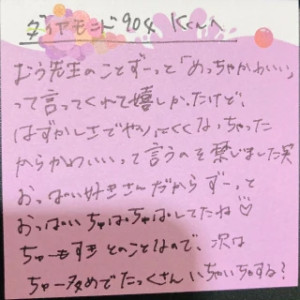 ダイヤモンド904 Kくんへ
むう先生のことずーっと「めっちゃかわいい」
って言ってくれて嬉しかったけど、
はずかしさでやりにくくなっちゃった
からかわいいって言うのを禁じました笑
おっぱい好きさんだからずーっと
おっぱいちゅぱちゅぱしてたね♡
ちゅーもすきとのことなので、次は
ちゅー多めでたっくさんいちゃいちゃする？